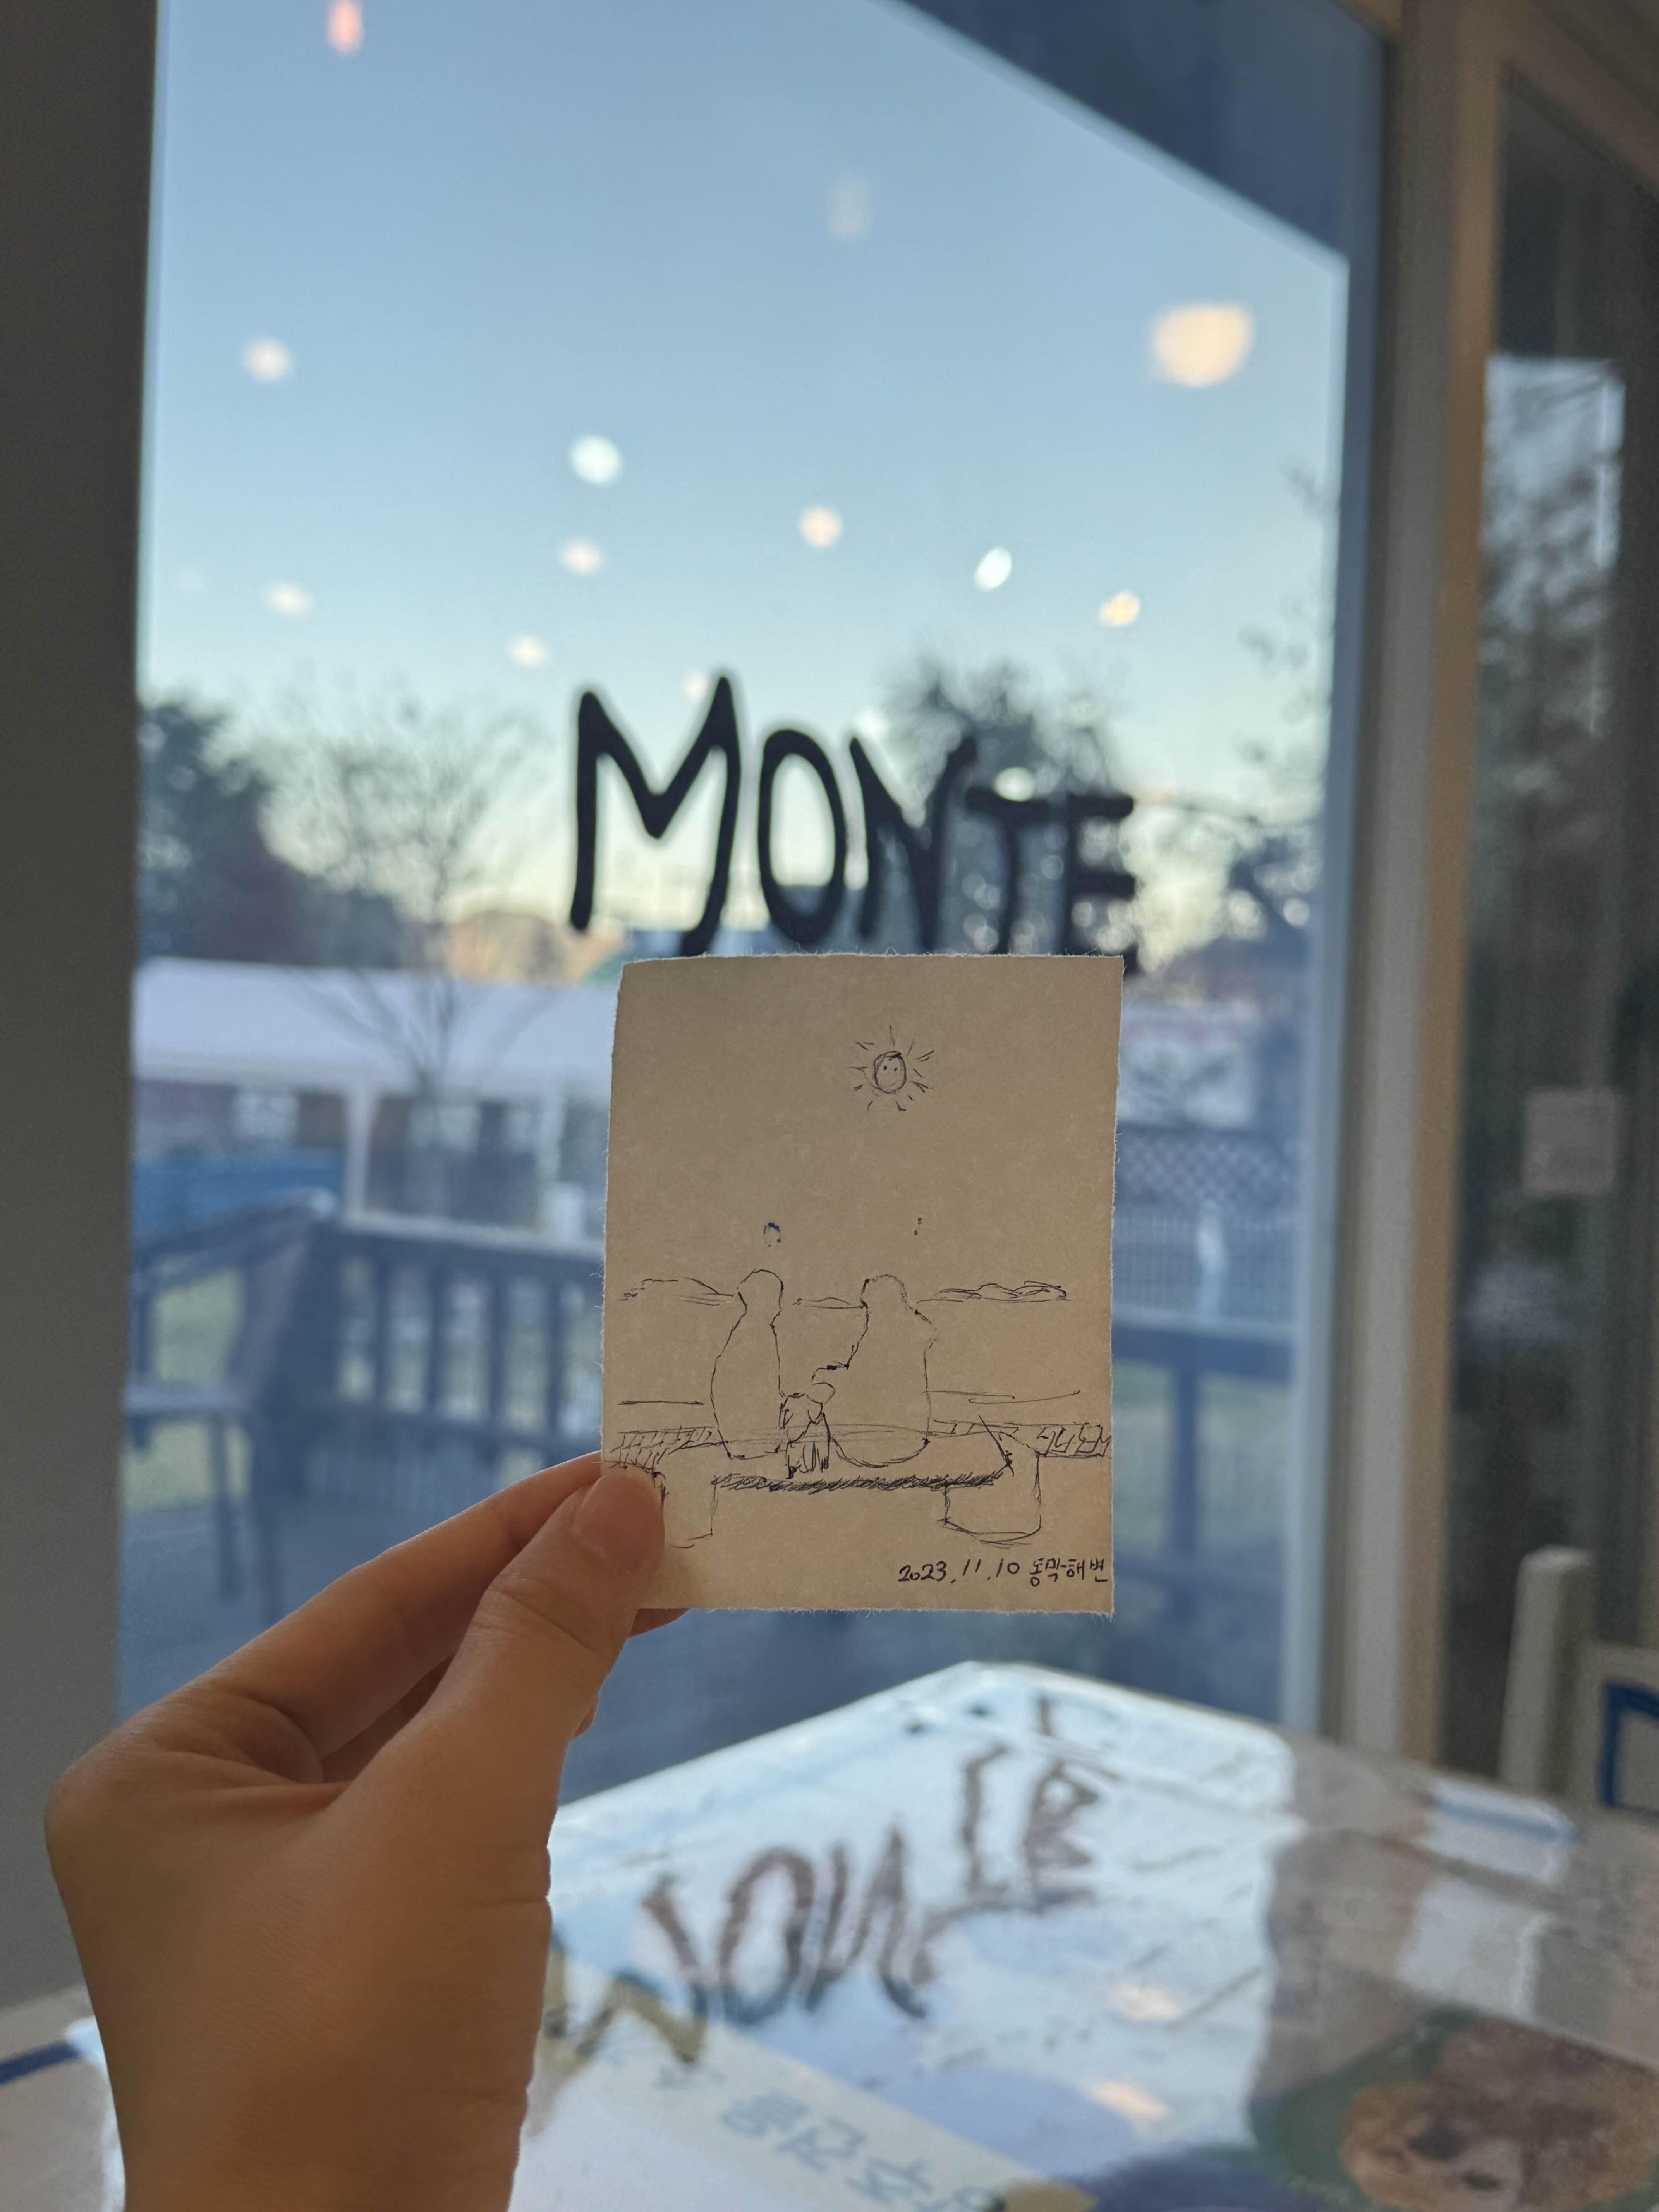 MONTE
2023.11.10 동막해변